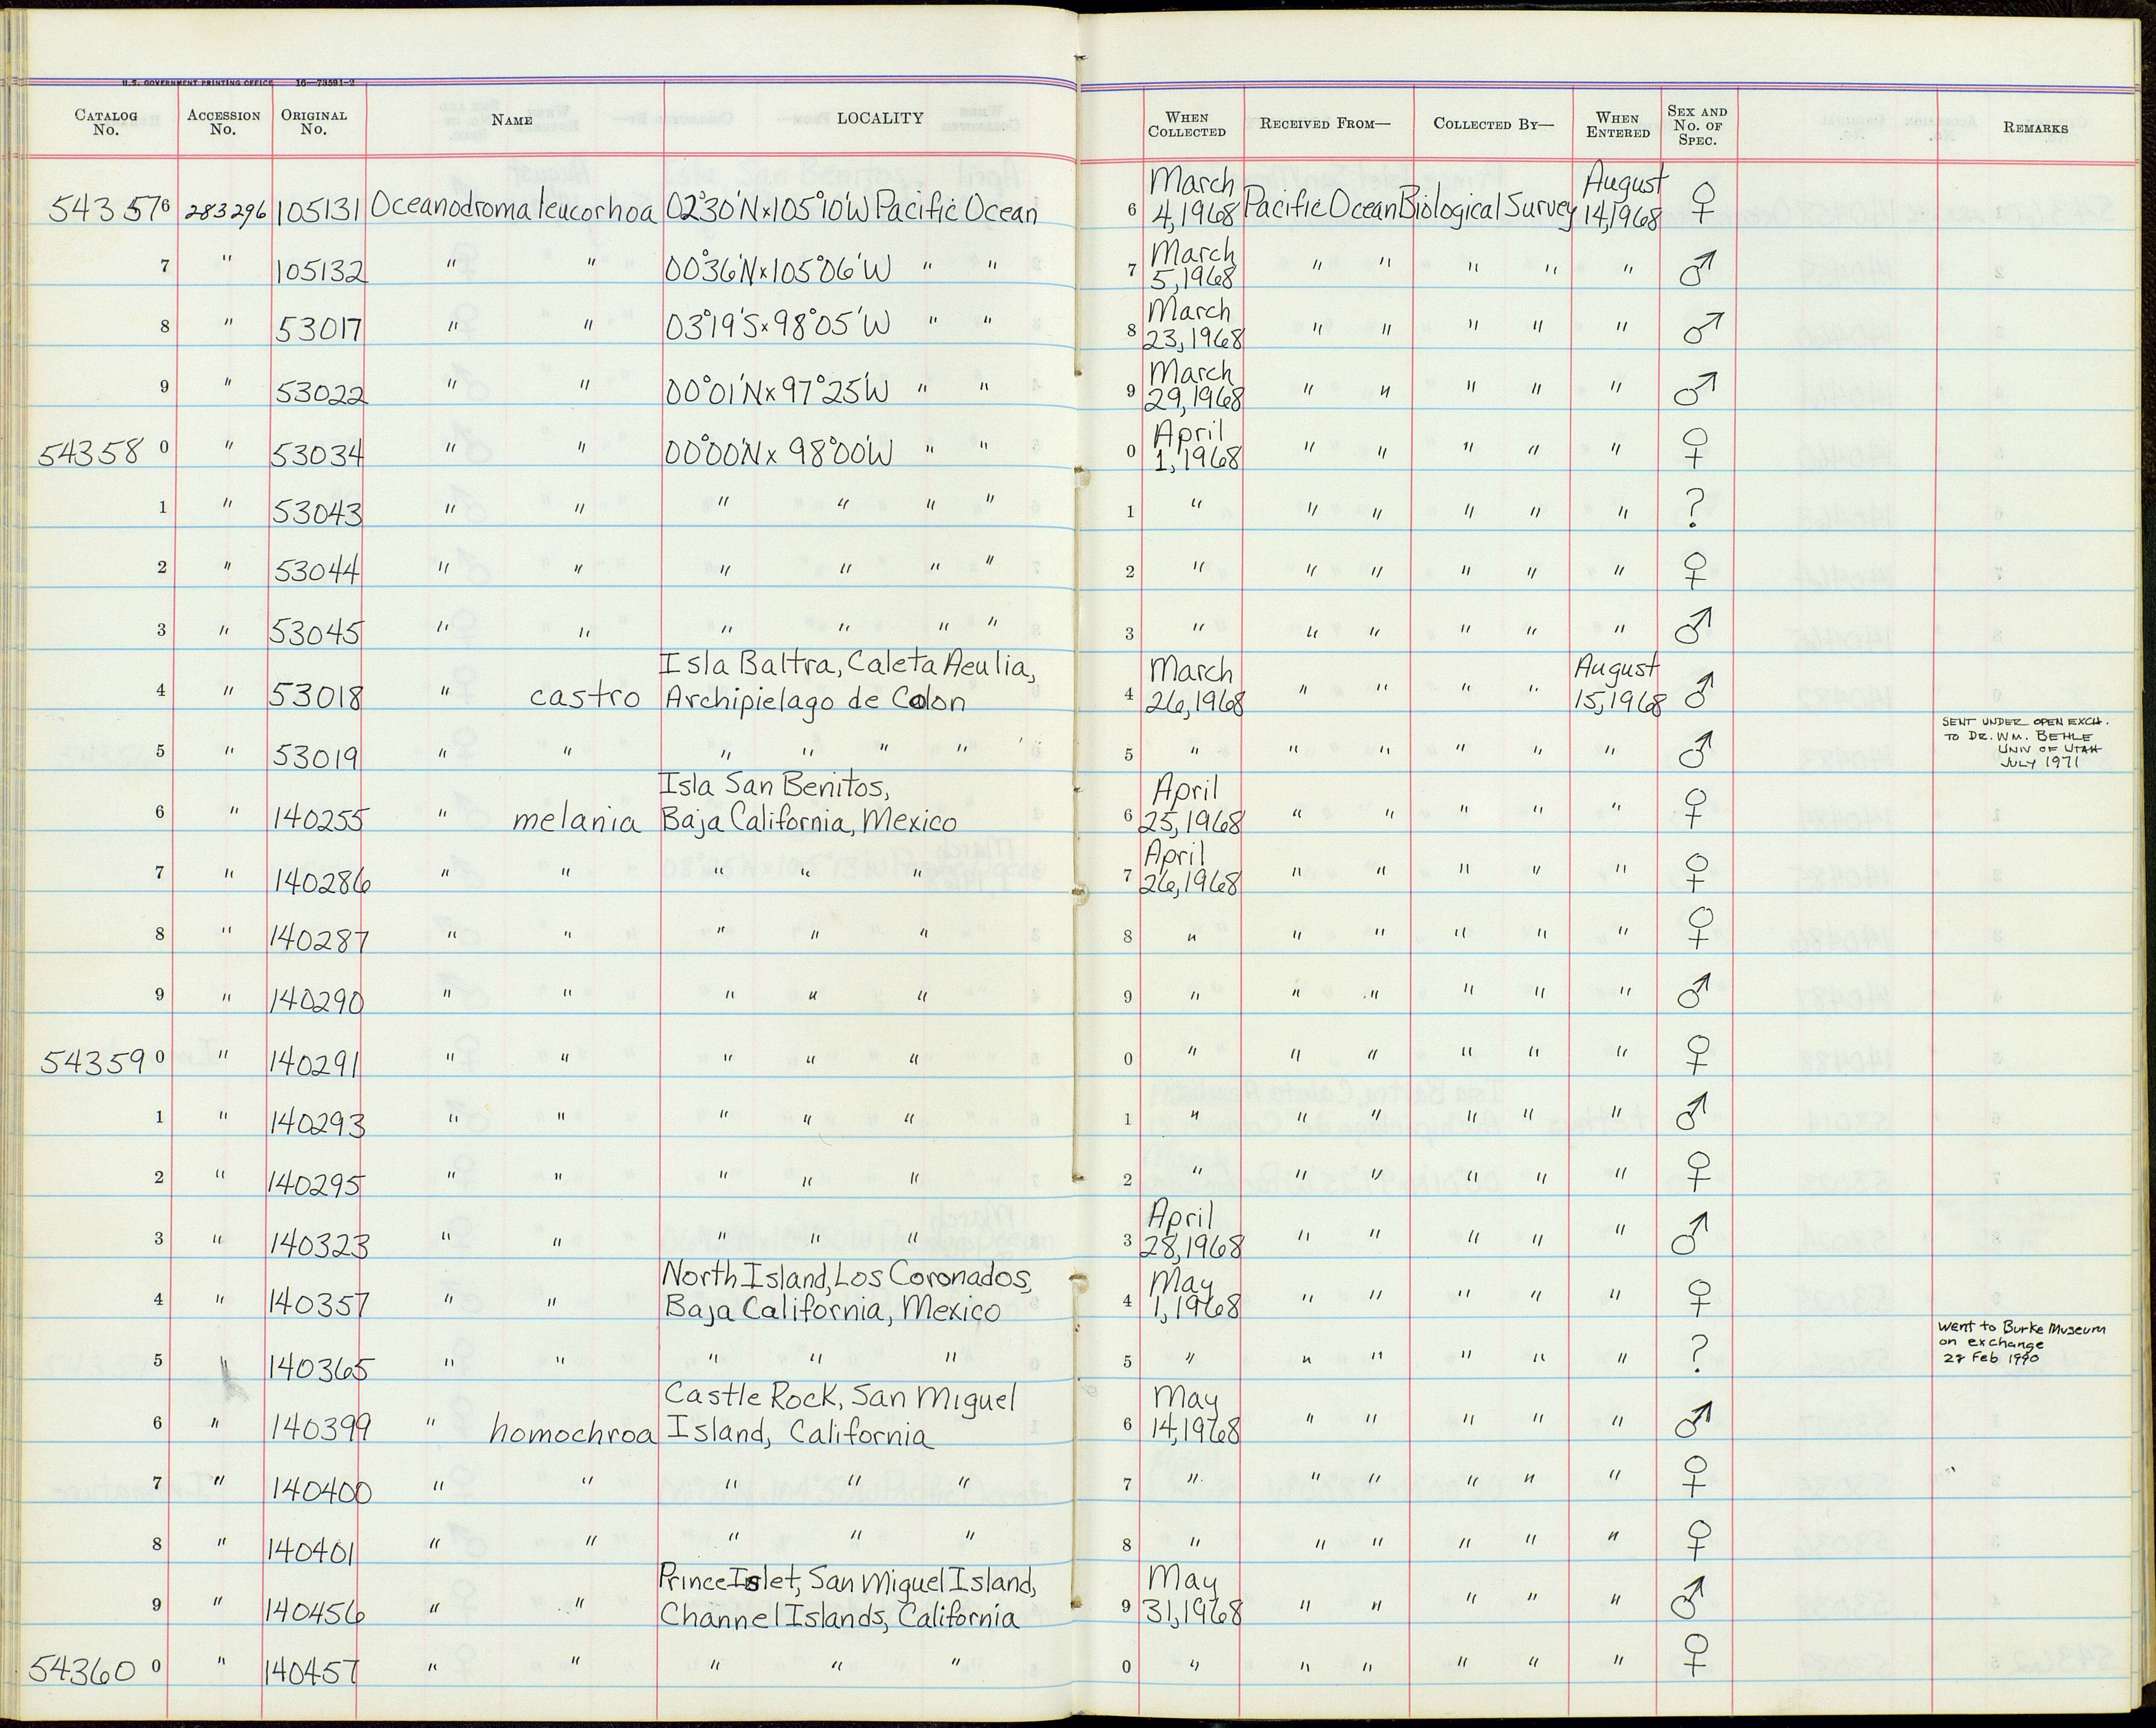 U.S. GOVERNMENT PRINTING OFFICE 16—73591-2
CATALOG No. ACCESSION No. ORIGINAL No. NAME LOCALITY WHEN COLLECTED RECEIVED FROM— COLLECTED BY— WHEN ENTERED SEX AND No. OF SPEC. REMARKS
543576 283296 105131 Oceanodroma leucorhoa 02°30'N x 105°10'W Pacific Ocean 6 March 4, 1968 Pacific Ocean Biological Survey August 14, 1968 ♀
7 " 105132 " " 00°36'N x 105°06'W " " 7 March 5, 1968 " " " " " ♂
8 " 53017 " " 03°19'S x 98°05'W " " 8 March 23, 1968 " " " " " ♂
9 " 53022 " " 00°01'N x 97°25'W " " 9 March 29, 1968 " " " " " ♂
543580 " 53034 " " 00°00'N x 98°00'W " " 0 April 1, 1968 " " " " " ♀
1 " 53043 " " " " " " 1 " " " " " " ?
2 " 53044 " " " " " " 2 " " " " " " ♀
3 " 53045 " " " " " " 3 " " " " " " ♂
4 " 53018 " castro Isla Baltra, Caleta Aeulia, Archipielago de Colon 4 March 26, 1968 " " " " August 15, 1968 ♂
5 " 53019 " " " " " " 5 " " " " " " ♂ SENT UNDER OPEN EXCH. TO DR. WM. BEHLE UNIV OF UTAH JULY 1971
6 " 140255 " melania Isla San Benitos, Baja California, Mexico 6 April 25, 1968 " " " " " ♀
7 " 140286 " " " " " 7 April 26, 1968 " " " " " ♀
8 " 140287 " " " " " 8 " " " " " " ♀
9 " 140290 " " " " " 9 " " " " " " ♂
543590 " 140291 " " " " " 0 " " " " " " ♀
1 " 140293 " " " " " 1 " " " " " " ♂
2 " 140295 " " " " " 2 " " " " " " ♀
3 " 140323 " " " " " 3 April 28, 1968 " " " " " ♂
4 " 140357 " " North Island, Los Coronados, Baja California, Mexico 4 May 1, 1968 " " " " " ♀
5 " 140365 " " " " " 5 " " " " " " ? went to Burke Museum on exchange 28 Feb 1990
6 " 140399 " homochroa Castle Rock, San Miguel Island, California 6 May 14, 1968 " " " " " ♂
7 " 140400 " " " " " 7 " " " " " " ♀
8 " 140401 " " " " " 8 " " " " " " ♀
9 " 140456 " " Prince Islet, San Miguel Island, Channel Islands, California 9 May 31, 1968 " " " " " ♂
543600 " 140457 " " " " " 0 " " " " " " ♀